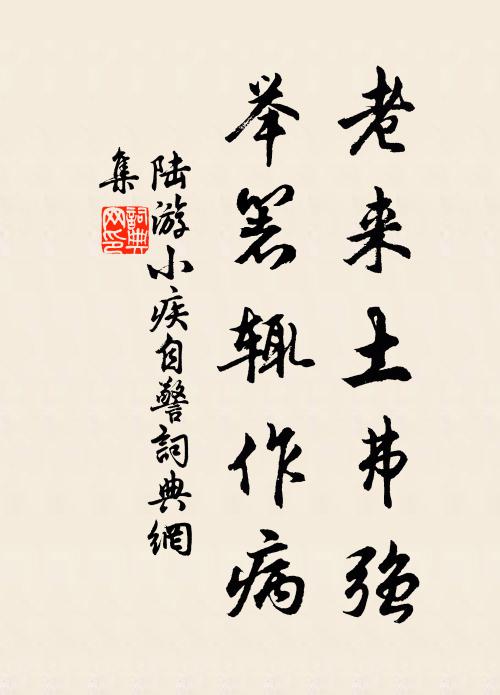 老来土弗强
举箸辄作病
陆游小疾自警詞典網
集
詞典
网印